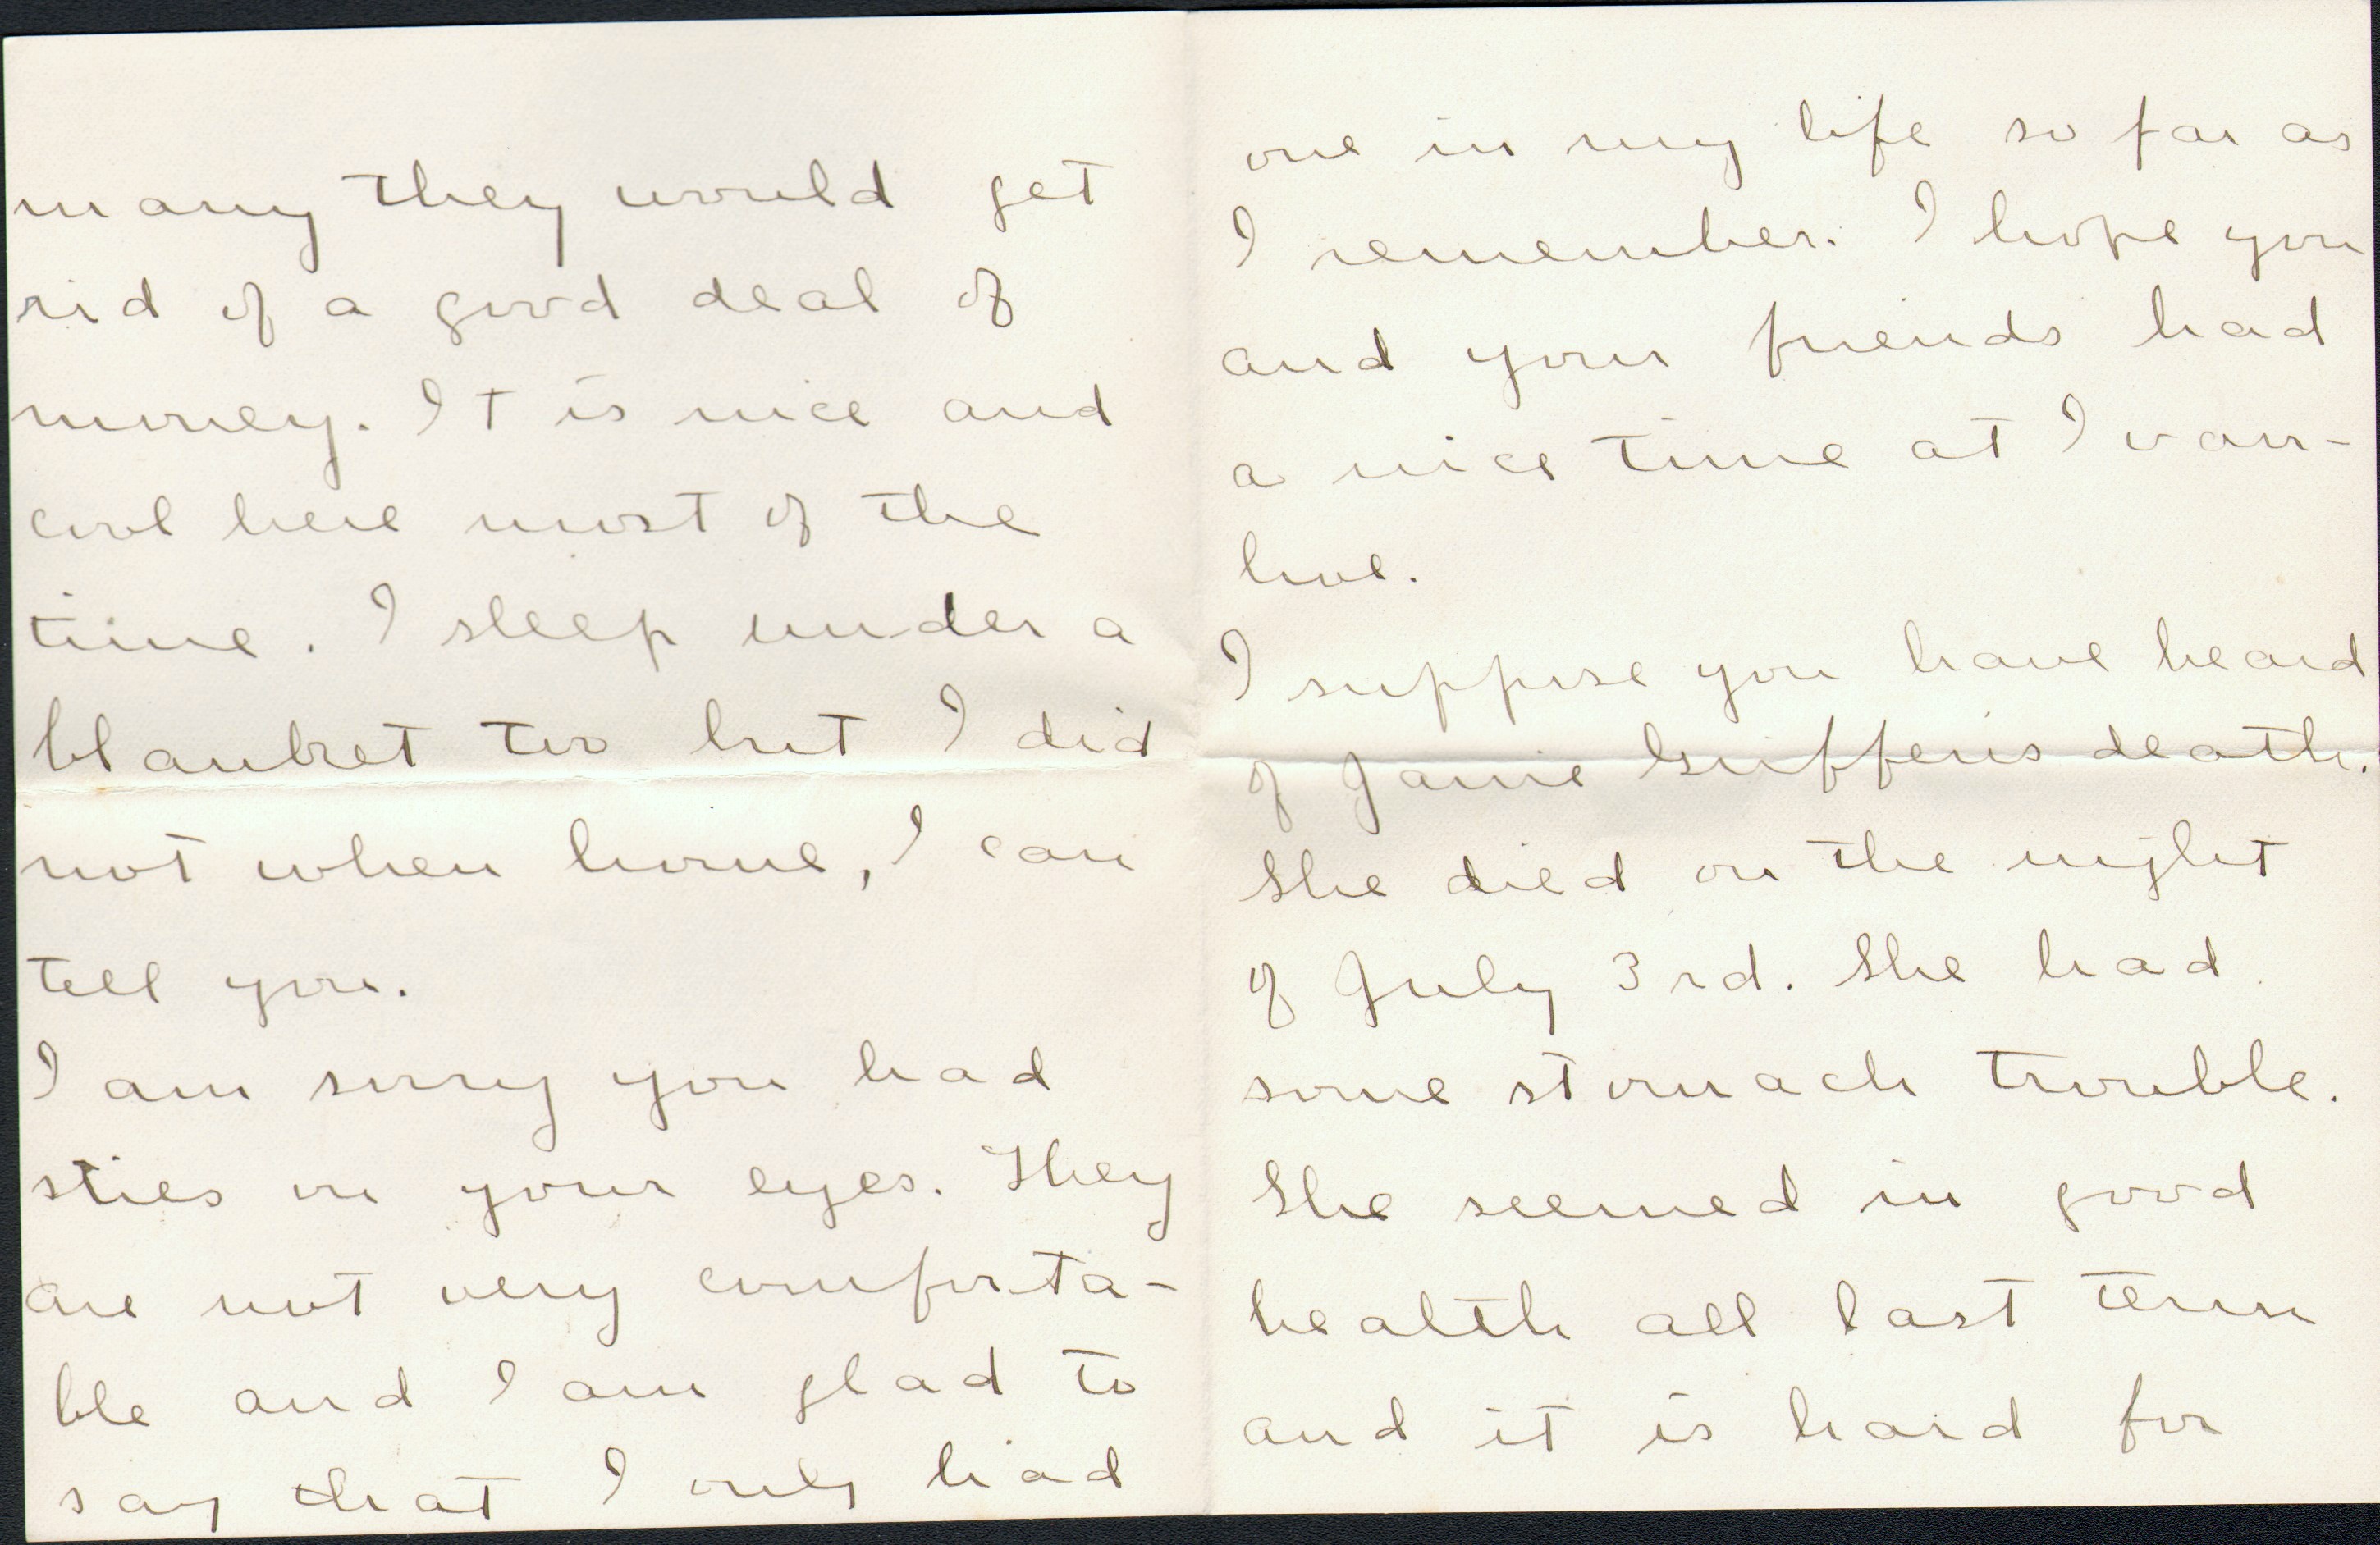 many they would get
rid of a good deal of
money. It is nice and
cool here most of the
time. I sleep under a
blanket too but I did
not when home, I can
tell you.
I am sorry you had
sties on your eyes. They
are not very comforta-
ble and I am glad to
say that I only had
one in my life so far as
I remember. I hope you
and your friends had
a nice time at Ivan-
hoe.
I suppose you have heard
of Janie Griffens death.
She died on the night
of July 3rd. She had
some stomach trouble.
She seemed in good
health all last term
and it is hard for